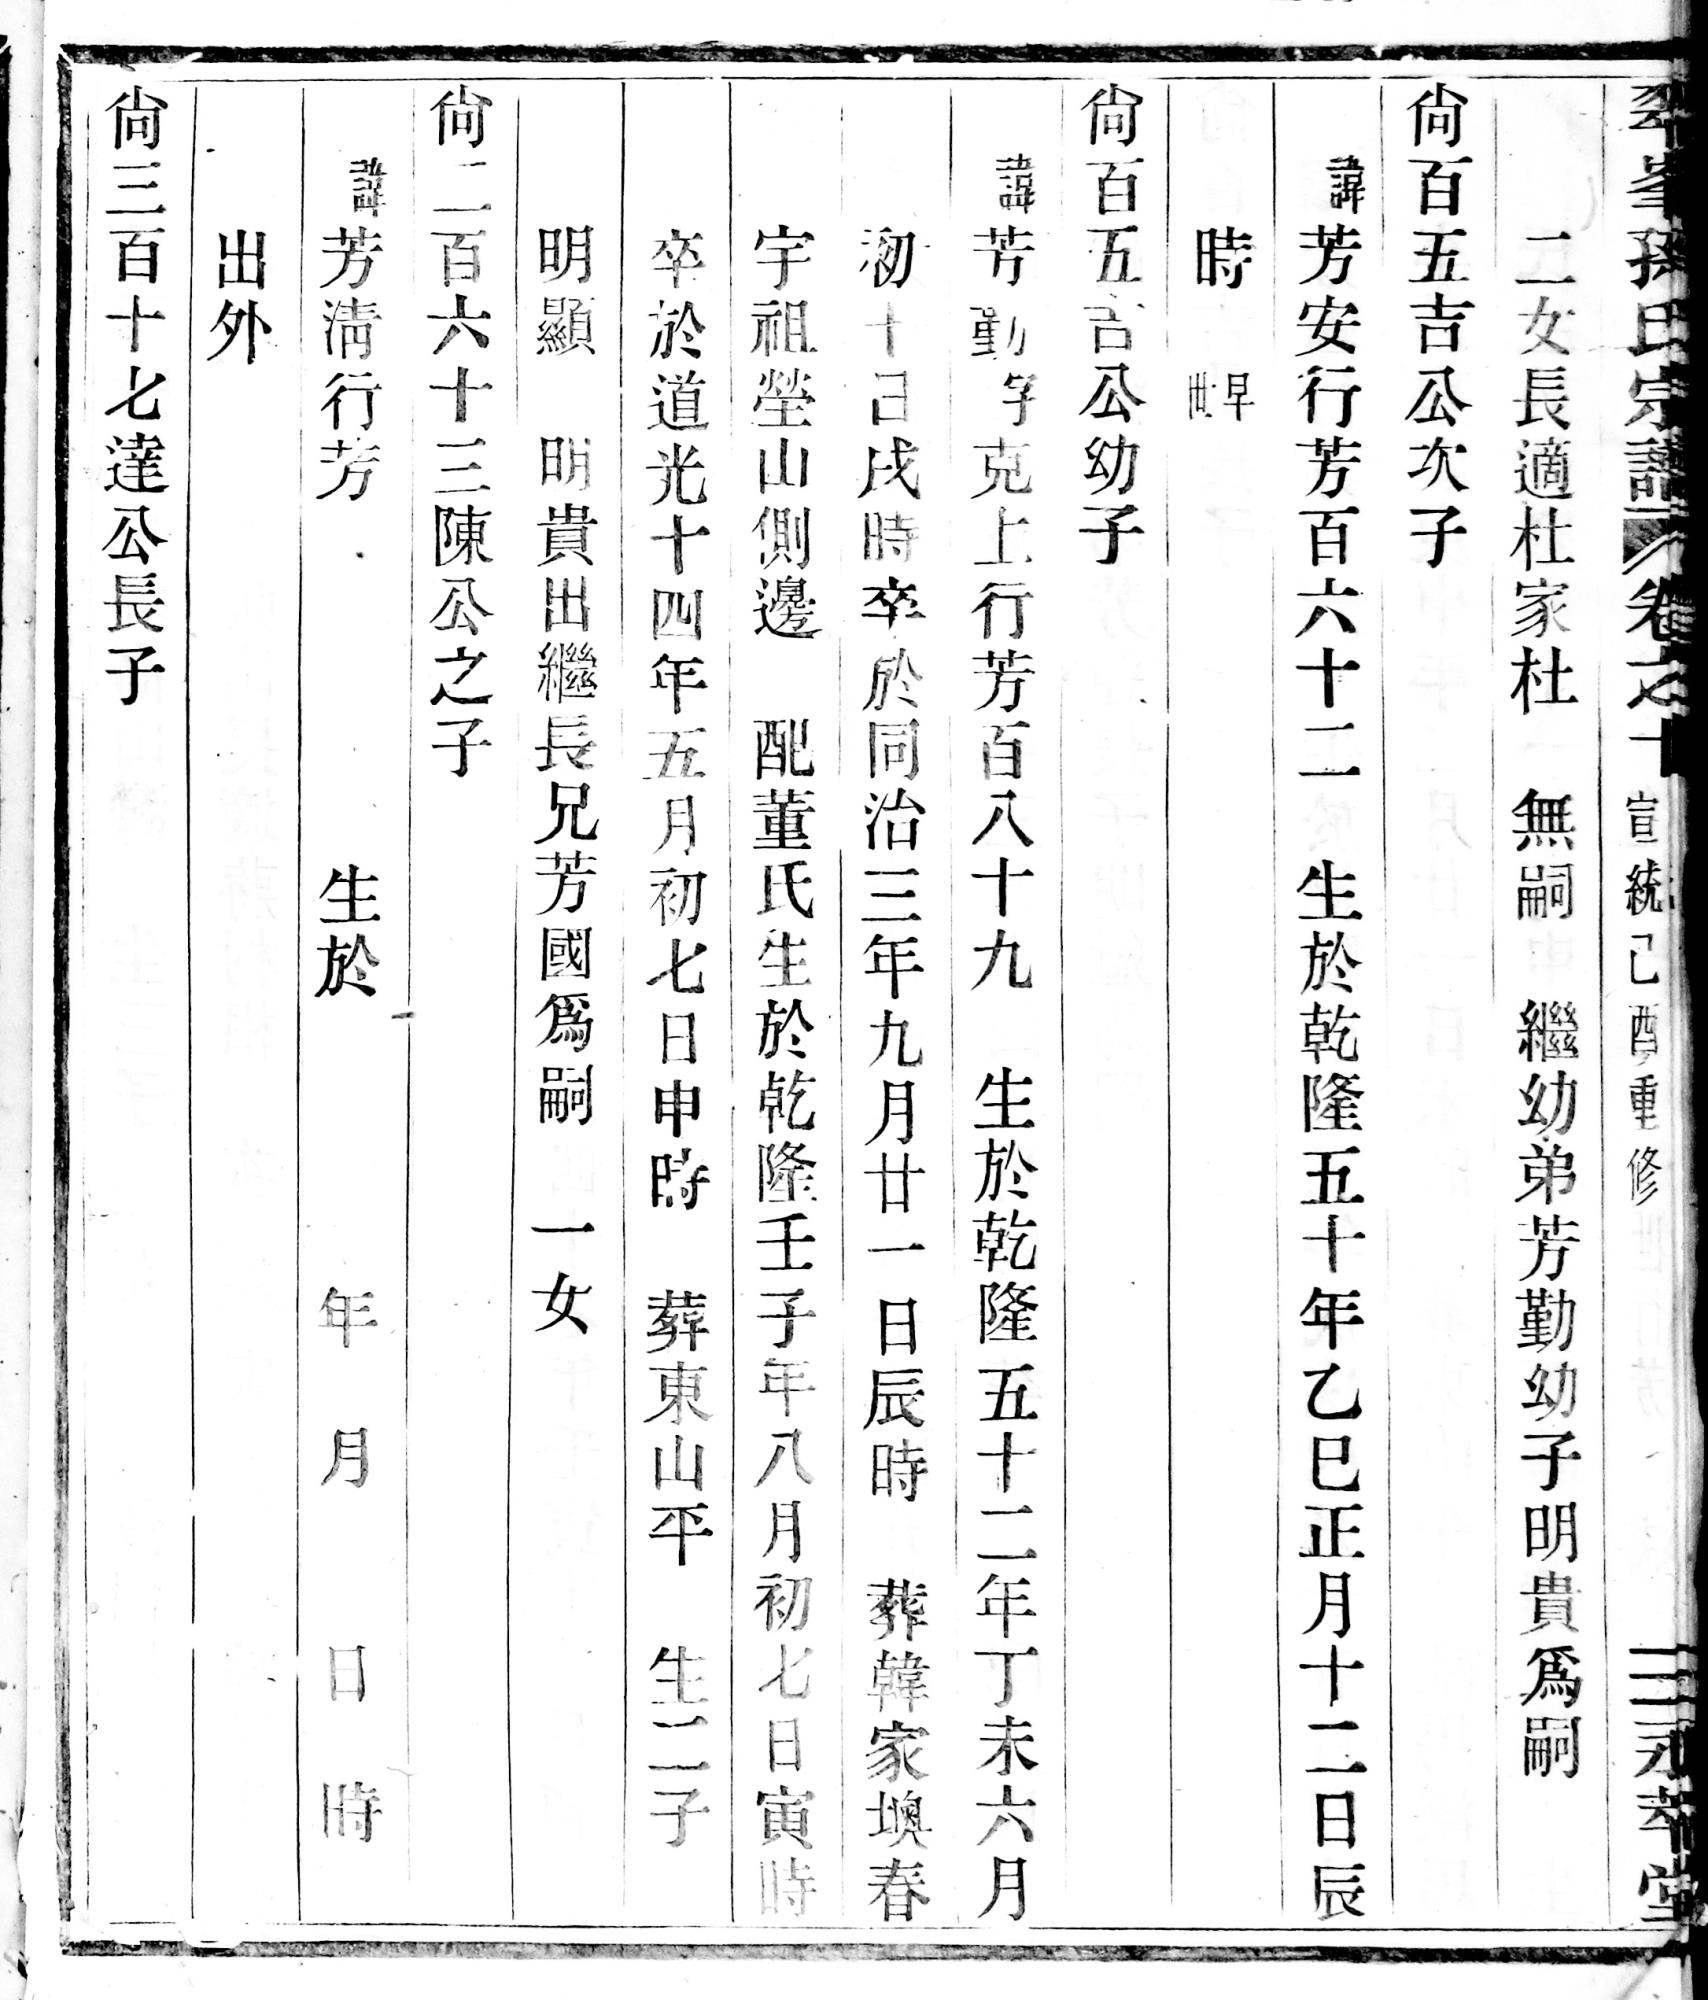 孫氏宗譜 卷之十 宣統己酉重修 三 永萃堂
二女長適杜家杜 無嗣 繼幼弟芳勤幼子明貴爲嗣
尙百五吉公次子
諱芳安行芳百六十二 生於乾隆五十年乙巳正月十二日辰
時 早世
尙百五吉公幼子
諱芳勤字克上行芳百八十九 生於乾隆五十二年丁未六月
初十日戌時卒於同治三年九月廿一日辰時 葬韓家墺春
宇祖塋山側邊 配董氏生於乾隆壬子年八月初七日寅時
卒於道光十四年五月初七日申時 葬東山平 生二子
明顯 明貴出繼長兄芳國爲嗣 一女
尙二百六十三陳公之子
諱芳淸行芳 生於 年 月 日 時
出外
尙三百十七達公長子